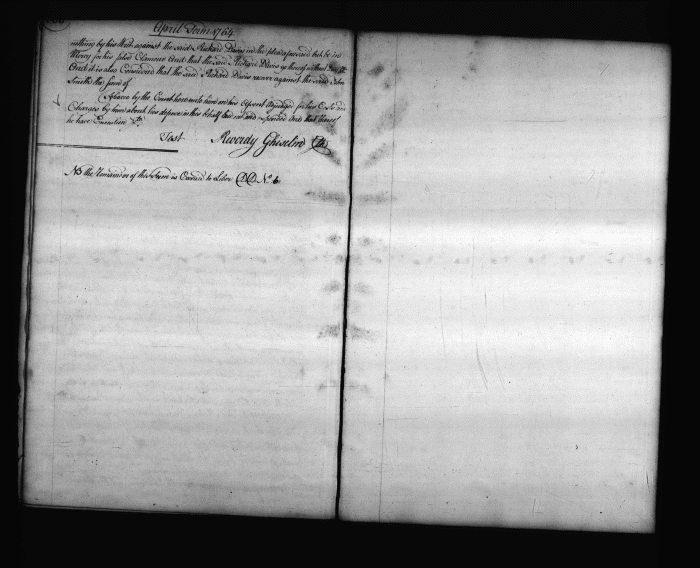 April Term 1764
nothing by his Writ against the said Richard Davis in the plea aforesaid but be in
Mercy for his false Clamour And that the said Richard Davis go thereof without Day &c
And it is also Considered that the said Richard Davis recover against the said John
Smith the Sum of
by the Court here unto him on his Assent Adjudged for his Costs and
Charges by him about his defence in this behalf laid out and Expended And that thereof
he have Execution &c
Test Reverdy Ghiselin Clk
NB the Remainder of this Term is Carried to Liber DD No. 6